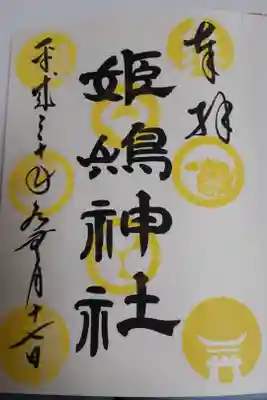 奉拝
姫嶋神社
平成三十年九月十七日